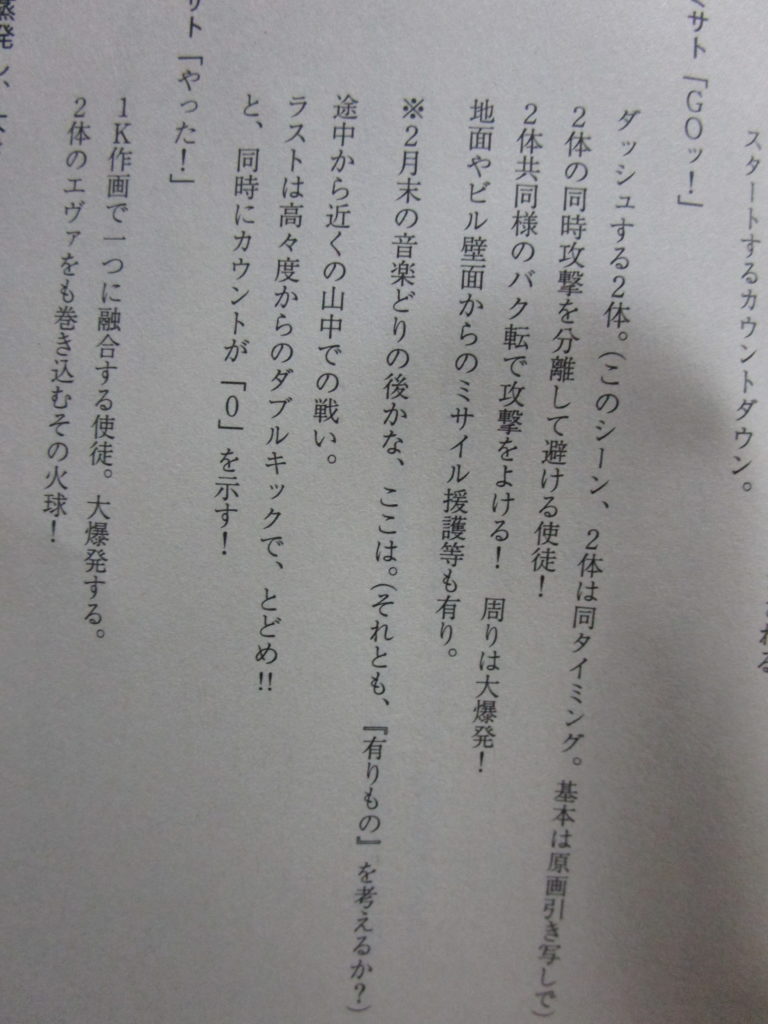 スタートするカウントダウン。
サト「GOッ!」
ダッシュする2体。(このシーン、2体は同タイミング。基本は原画引き写しで)
2体の同時攻撃を分離して避ける使徒!
2体共同様のバク転で攻撃をよける! 周りは大爆発!
地面やビル壁面からのミサイル援護等も有り。
※2月末の音楽どりの後かな、ここは。(それとも、『有りもの』を考えるか?)
途中から近くの山中での戦い。
ラストは高々度からのダブルキックで、とどめ!!
と、同時にカウントが「0」を示す!
サト「やった!」
1K作画で一つに融合する使徒。大爆発する。
2体のエヴァをも巻き込むその火球!